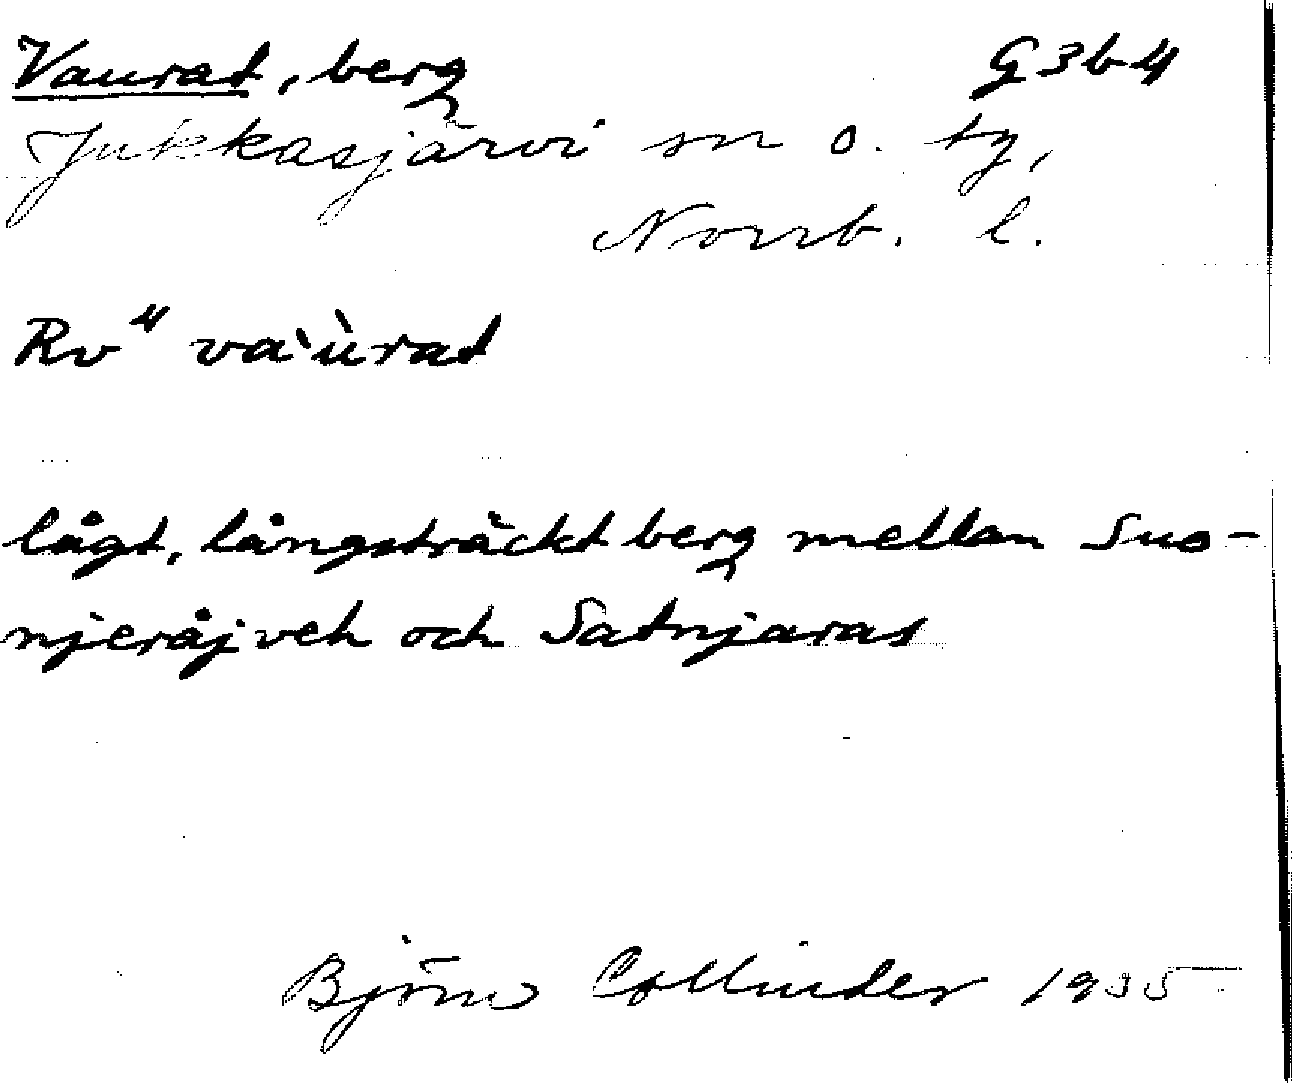 Vaurat, berg G3b4
Jukkasjärvi sn o. tg,
Norrb. l.
Rv⁴ va`ùrat
lågt, långsträckt berg mellan Suo-
njeråjveh och Satnjaras
Björn Collinder 1935